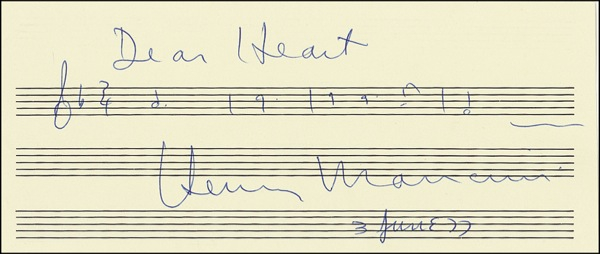 Dear Heart
3/4
Henry Mancini
3 June 77